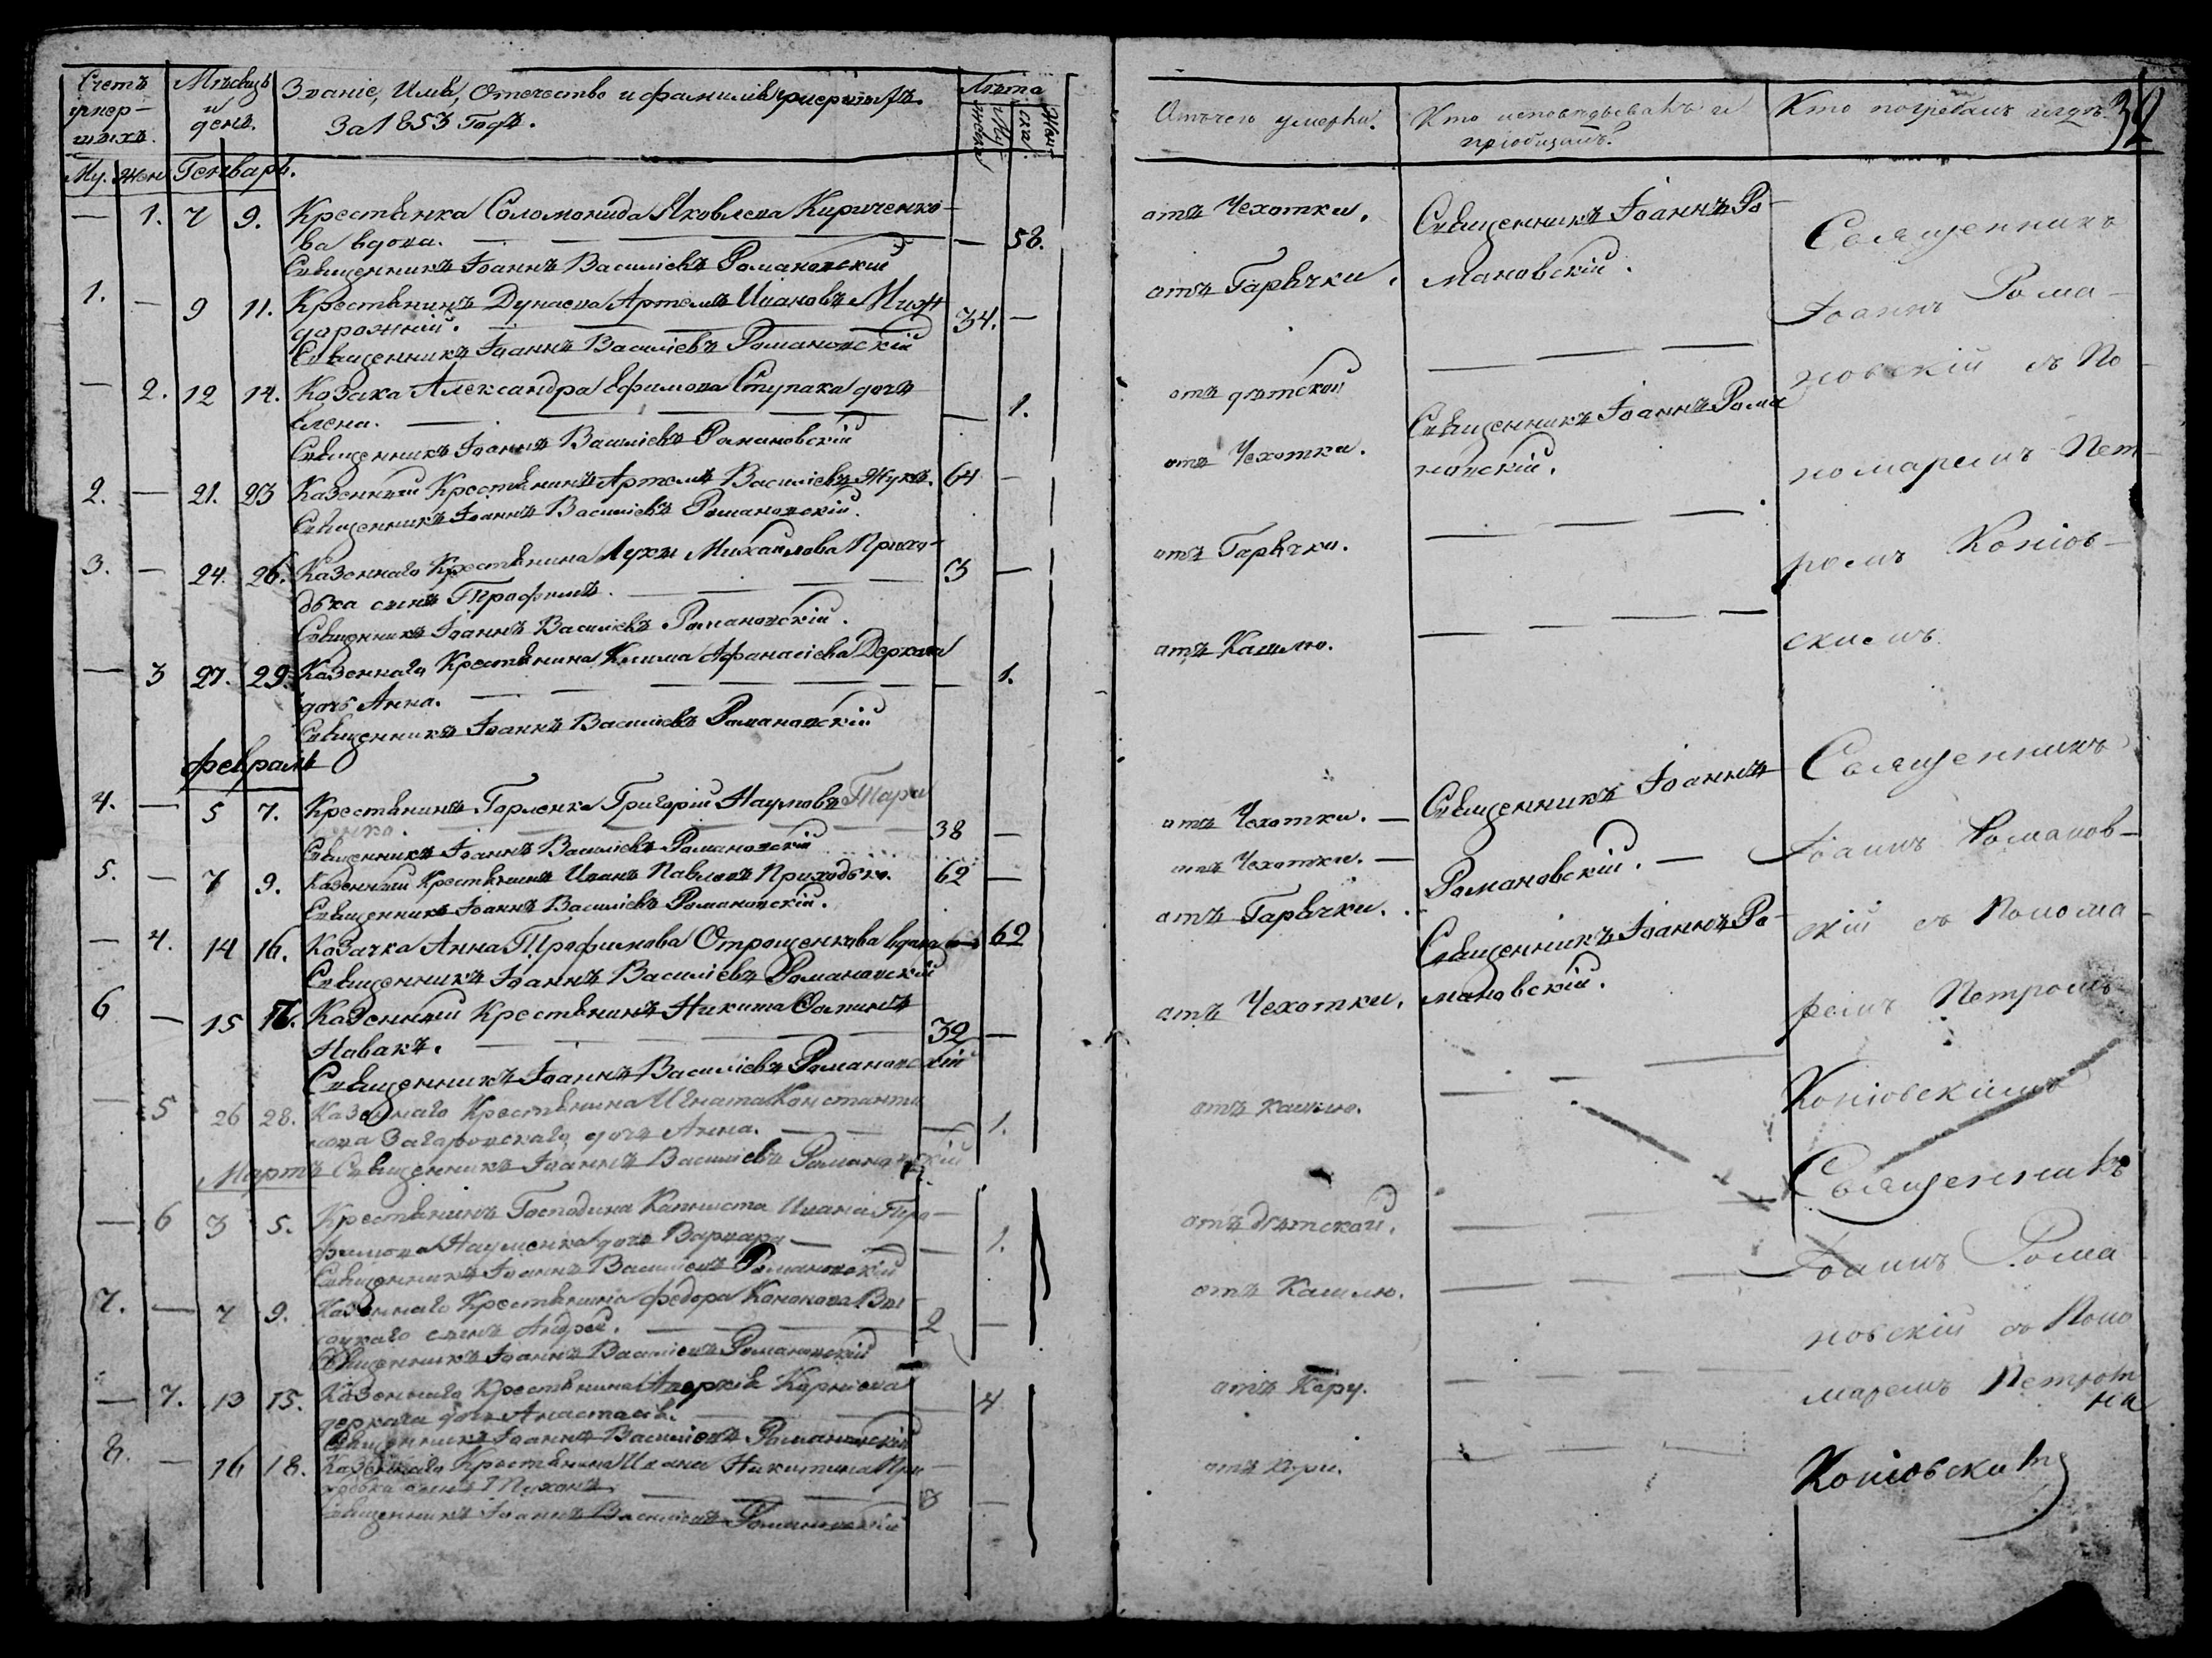 Счетъ умер-
шихъ.
Мѣсяцъ
и
день.
Званіе, Имя, Отечество и фамилія умершихъ.
За 1853 Годъ.
Лѣта
Муж. жен. Генварь.
— 1. 7 9. Крестьянка Соломонида Яковлева Кириченко-
ва вдова. — 58.
Священникъ Іоаннъ Василіевъ Романовскій
1. — 9 11. Крестьянинъ Дунаева Артемъ Ивановъ
34. —
Священникъ Іоаннъ Василіевъ Романовскій
— 2. 12 14. Козака Александра Ефимова Ступака дочь
Елена. — 1.
Священникъ Іоаннъ Василіевъ Романовскій
2. — 21. 23 Казенный Крестьянинъ Артемъ Василіевъ Жукъ. 64 —
Священникъ Іоаннъ Василіевъ Романовскій.
3. — 24. 26. Казеннаго Крестьянина Луки Михайлова Прихо-
дька сынъ Трофимъ. 3 —
Священникъ Іоаннъ Василіевъ Романовскій.
— 3 27. 29. Казеннаго Крестьянина Клима Афанасіева Деркача
дочь Анна. — 1.
Священникъ Іоаннъ Василіевъ Романовскій
февраль
4. — 5 7. Крестьянинъ Горленка Григорій Наумовъ
38 —
Священникъ Іоаннъ Василіевъ Романовскій
5. — 7 9. Казенный Крестьянинъ Иванъ Павловъ Приходько. 62 —
Священникъ Іоаннъ Василіевъ Романовскій.
— 4. 14 16. Козачка Анна Трофимова Отрощенкова вдова 62
Священникъ Іоаннъ Василіевъ Романовскій
6 — 15 17. Казенный Крестьянинъ Никита
Новакъ. 32 —
Священникъ Іоаннъ Василіевъ Романовскій
— 5 26 28. Казеннаго Крестьянина Игната Константи
нова дочь Анна. — 1.
Мартъ Священникъ Іоаннъ Василіевъ Романовскій
— 6 3 5. Крестьянинъ Господина Капниста Ивана Тро-
фимова Науменка дочь Варвара — 1.
Священникъ Іоаннъ Василіевъ Романовскій
7. — 7 9. Казеннаго Крестьянина Федора Кононова
сынъ Андрей. 2 —
Священникъ Іоаннъ Василіевъ Романовскій
— 7. 13 15. Казеннаго Крестьянина Аверкія Корніева
деркача дочь Анастасія. — 4
Священникъ Іоаннъ Василіевъ Романовскій
8. — 16 18. Казеннаго Крестьянина Ивана Никитина При
ходька сынъ Тихонъ. —
Священникъ Іоаннъ Василіевъ Романовскій
Отъ чего умерли.
Кто исповѣдывалъ и
пріобщалъ?
Кто погребалъ и гдѣ?
32
отъ Чехотки.
отъ Гарячки.
отъ дѣтской
отъ Чехотки.
отъ Гарячки.
отъ Кашлю.
отъ Чехотки. —
отъ Чехотки. —
отъ Гарячки.
отъ Чехотки.
отъ кашлю.
отъ дѣтской.
отъ Кашлю.
отъ Кору.
отъ кори.
Священникъ Іоаннъ Ро-
мановскій.
Священникъ Іоаннъ Рома
новскій.
Священникъ Іоаннъ
Романовскій. —
Священникъ Іоаннъ Ро-
мановскій.
Священникъ
Іоаннъ Рома-
новскій съ По-
номаремъ Пет-
ромъ Копіов-
скимъ
Священникъ
Іоаннъ Романов-
скій съ Понома-
ремъ Петромъ
Копіовскимъ
Священникъ
Іоаннъ Рома
новскій съ Поно
маремъ Петромъ
Копіовскимъ